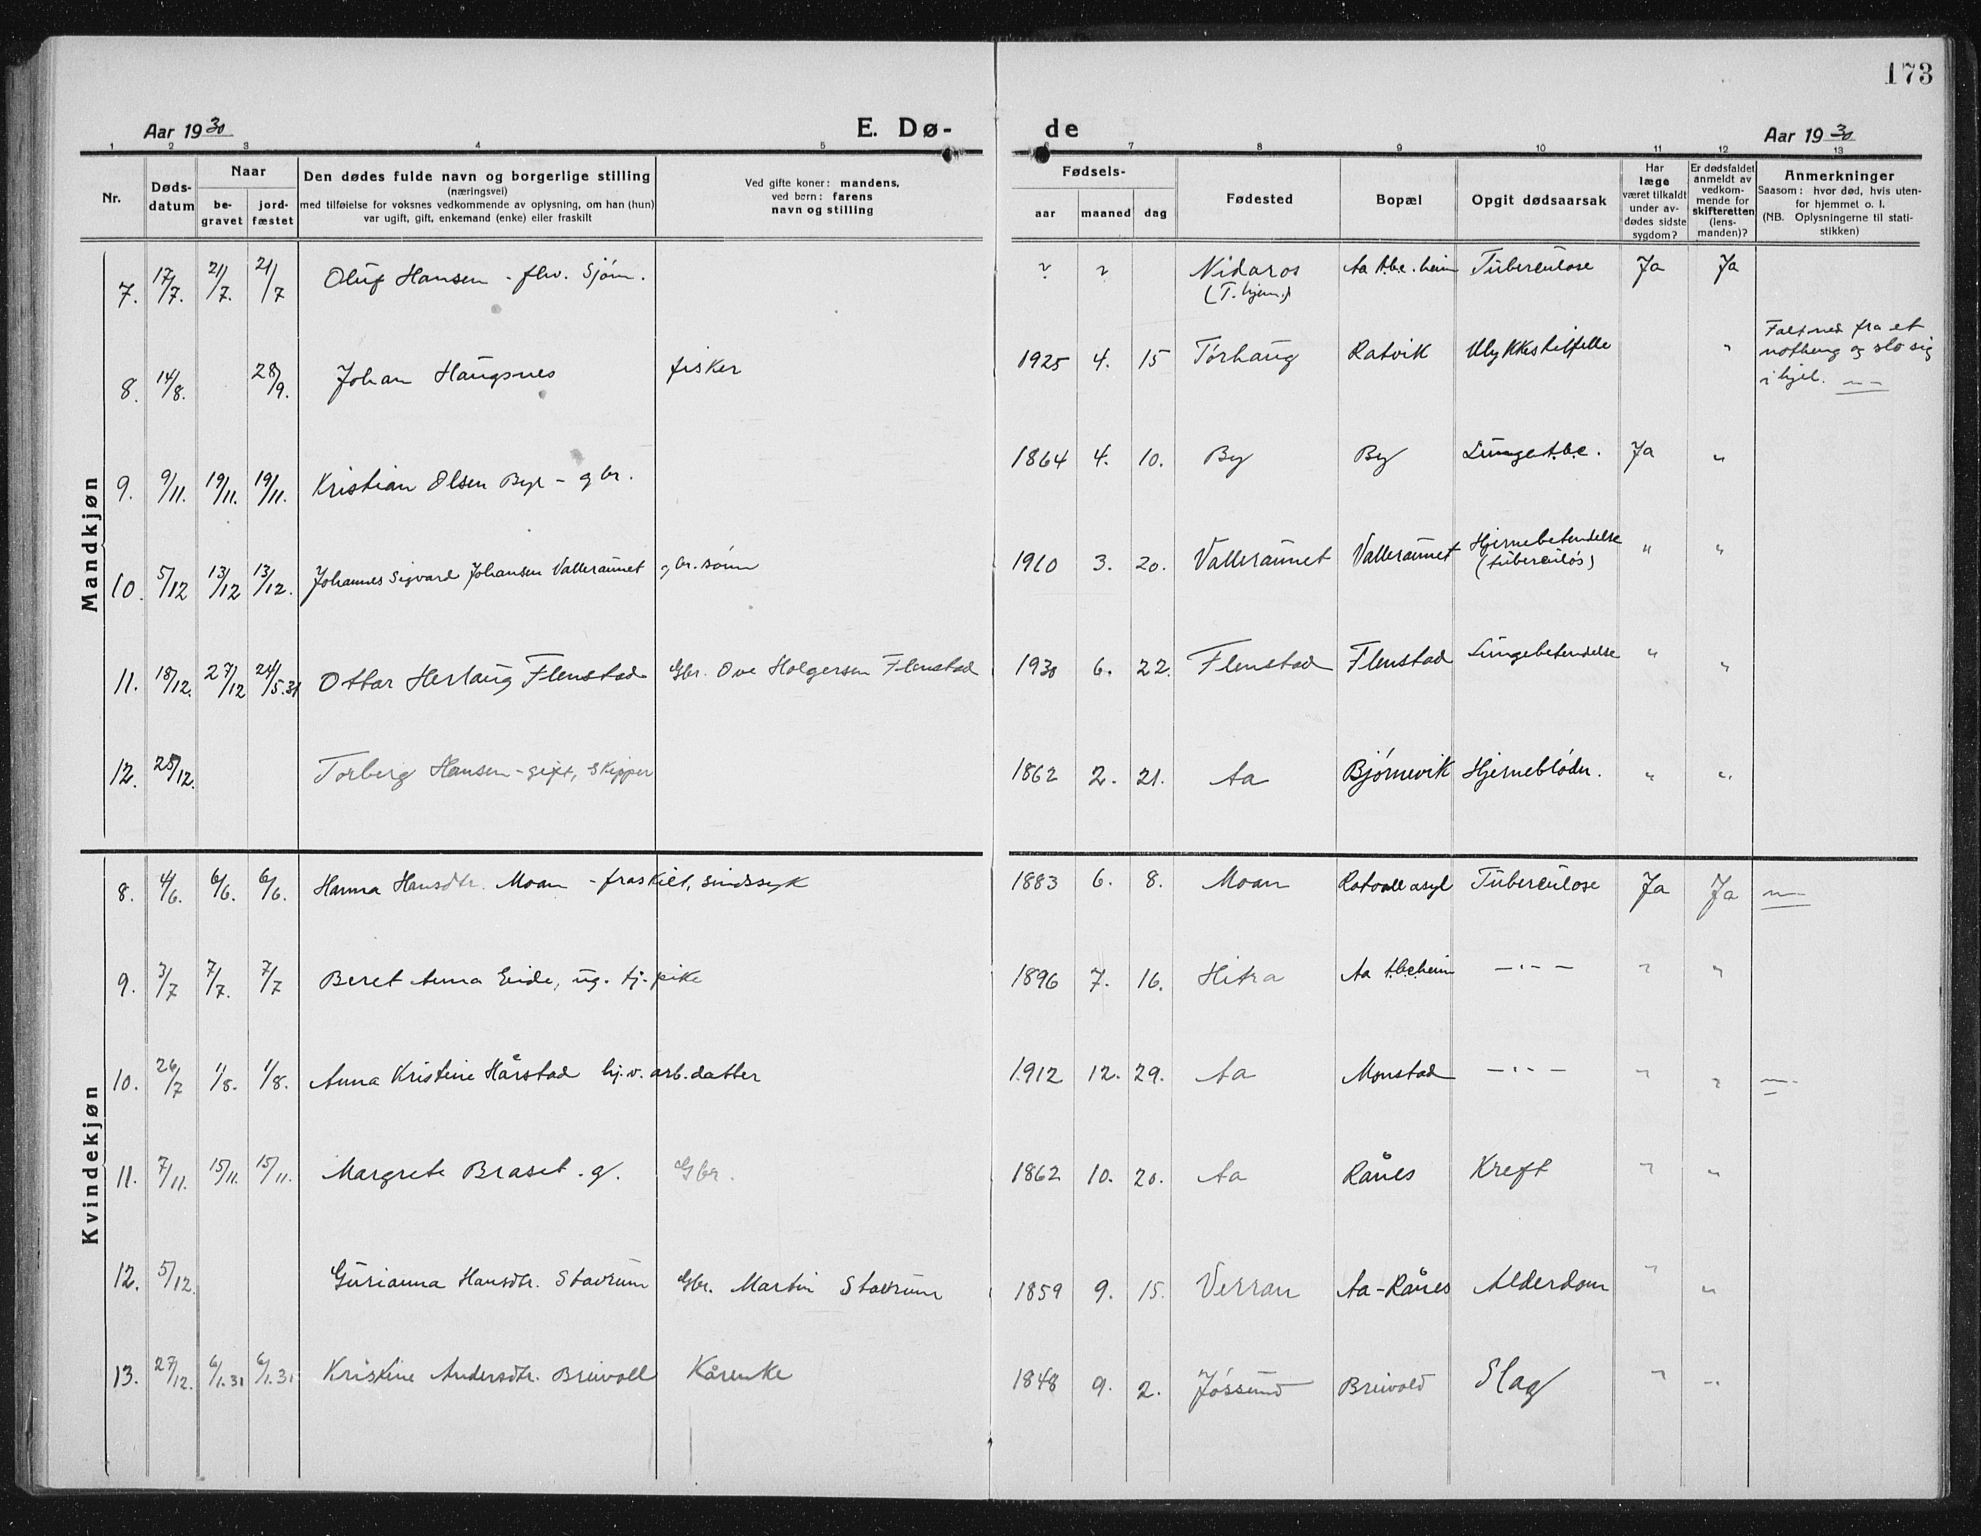 173
Aar 1930 E. Dø- de Aar 1930
1 2 3 4 5 6 7 8 9 10 11 12 13
Nr.
Døds-
datum
Naar
be-
gravet
jord-
fæstet
Den dødes fulde navn og borgerlige stilling
(næringsvei)
med tilføielse for voksnes vedkommende av oplysning, om han (hun)
var ugift, gift, enkemand (enke) eller fraskilt
Ved gifte koner: mandens,
ved børn: farens
navn og stilling
Fødsels-
aar maaned dag
Fødested
Bopæl
Opgit dødsaarsak
Har
læge
været tilkaldt
under av-
dødes sidste
sygdom?
Er dødsfaldet
anmeldt av
vedkom-
mende for
skifteretten
(lens-
manden)?
Anmerkninger
Saasom: hvor død, hvis uten-
for hjemmet o. l.
(NB. Oplysningerne til stati-
stikken)
Mandkjøn
7. 17/7. 21/7. 21/7 Oluf Hansen - fhv. Sjøm. ? ? Nidaros Aa tbc. heim Tuberculose Ja Ja
(T.hjem)
8. 14/8. 28/9. Johan Haugsnes fisker 1925 4. 15 Tørhaug Ratvik Ulykkestilfelle "
Falt ned fra et
notheng og slo sig
ihjel.
9. 9/11. 19/11. 19/11. Kristian Olsen By - gbr. 1864 4. 10. By By Lungetbc. Ja "
10. 5/12 13/12 13/12. Johannes Sigvard Johansen Valleraunet gbr. sønn 1910 3. 20. Valleraunet Valleraunet Hjernebetendelse " "
(tuberculøs)
11. 18/12. 27/12 24/5.31 Ottar Herlaug Flenstad Gbr. Ove Holgersen Flenstad 1930 6. 22. Flenstad Flenstad Lungebetendelse " "
12. 25/12. Torberg Hansen - gift, skipper 1862 2. 21. Aa Bjørnevik Hjerneblødn. " "
Kvindekjøn
8. 4/6. 6/6. 6/6. Hanna Hansdtr. Moan - fraskilt, sindssyk 1883 6. 8. Moan Rotvoll asyl Tuberculose Ja Ja
9. 3/7 7/7. 7/7 Beret Anna Eide, ug. tj. pike 1896 7. 16. Hitra Aa tbcheim - " - " "
10. 26/7 1/8. 1/8. Anna Kristine Hårstad hj.v. arb. datter 1912 12. 29. Aa Monstad - " - " "
11. 7/11. 15/11. 15/11. Margrete Braset. g. Gbr. 1862 10. 20. Aa Rånes Kreft " "
12. 5/12. Gurianna Hansdtr. Stavrum Gbr. Martin Stavrum 1859 9. 15. Verran Aa-Rånes Alderdom " "
13. 27/12. 6/1.31 6/1.31 Kristine Andersdtr. Breivoll Kårenke 1848 9. 2. Jøssund Breivold Slag " "